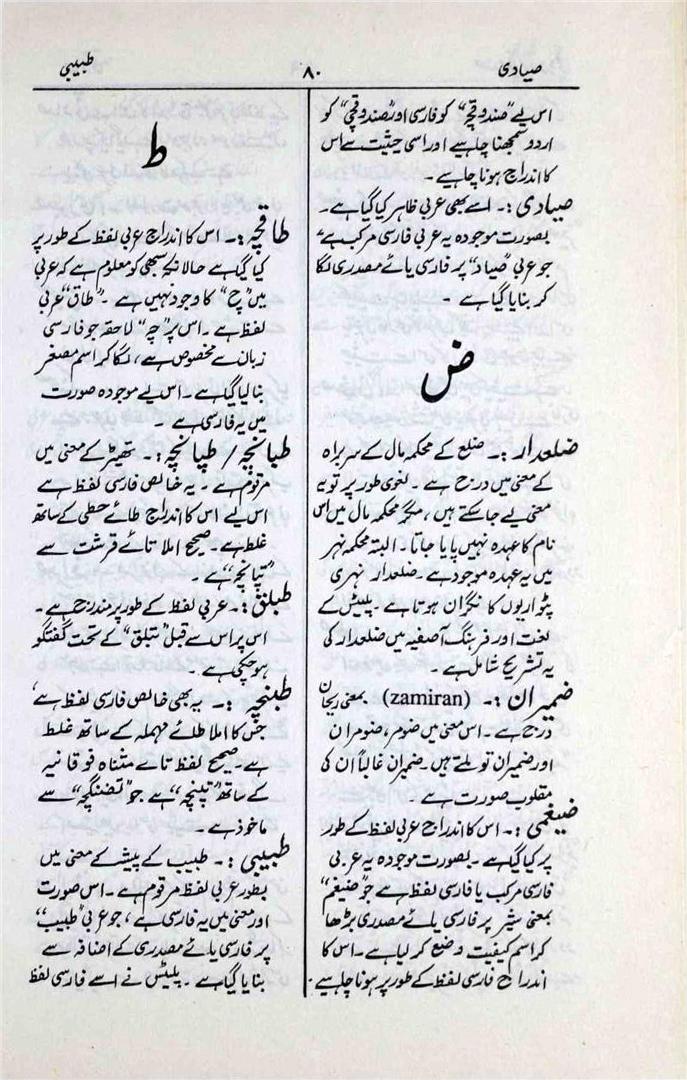 صیادی
۸۰
طبیبی
اس لیے ”صندوقچہ“ کو فارسی اور ”صندوقچی“ کو
اردو سمجھنا چاہیے اور اسی حیثیت سے اس
کا اندراج ہونا چاہیے۔
صیادی :۔ اسے بھی عربی ظاہر کیا گیا ہے۔
بصورت موجودہ یہ عربی فارسی مرکب ہے
جو عربی ”صیاد“ پر فارسی یائے مصدری لگا
کر بنایا گیا ہے۔
ض
ضلعدار :۔ ضلع کے محکمہ مال کے سربراہ
کے معنی میں درج ہے۔ لغوی طور پر تو یہ
معنی لیے جا سکتے ہیں، مگر محکمہ مال میں اس
نام کا عہدہ نہیں پایا جاتا۔ البتہ محکمہ نہر
میں یہ عہدہ موجود ہے۔ ضلعدار نہری
پٹواریوں کا نگران ہوتا ہے۔ پلیٹس کے
لغت اور فرہنگ آصفیہ میں ضلعدار کی
یہ تشریح شامل ہے۔
ضمیران :۔ (zamiran) بمعنی ریحان
درج ہے۔ اس معنی میں ضومر، ضومران
اور ضمیران تو ملتے ہیں۔ ضمیران غالباً ان کی
مقلوب صورت ہے۔
ضیغمی :۔ اس کا اندراج عربی لفظ کے طور
پر کیا گیا ہے۔ بصورت موجودہ یہ عربی
فارسی مرکب یا فارسی لفظ ہے جو ”ضیغم“
بمعنی شیر پر فارسی یائے مصدری بڑھا
کر اسم کیفیت وضع کر لیا ہے۔ اس کا
اندراج فارسی لفظ کے طور پر ہونا چاہیے۔
ط
طاقچہ :۔ اس کا اندراج عربی لفظ کے طور پر
کیا گیا ہے حالانکہ سبھی کو معلوم ہے کہ عربی
میں ”چ“ کا وجود نہیں ہے۔ ”طاق“ عربی
لفظ ہے۔ اس پر ”چہ“ لاحقہ جو فارسی
زبان سے مخصوص ہے، لگا کر اسم مصغر
بنا لیا گیا ہے۔ اس لیے موجودہ صورت
میں یہ فارسی ہے۔
طبانچہ / طپانچہ :۔ تھپڑ کے معنی میں
مرقوم ہے۔ یہ خالص فارسی لفظ ہے
اس لیے اس کا اندراج طائے حطی کے ساتھ
غلط ہے۔ صحیح املا تائے قرشت سے
”تپانچہ“ ہے۔
طبلنق :۔ عربی لفظ کے طور پر مندرج ہے۔
اس پر اس سے قبل ”تبلق“ کے تحت گفتگو
ہو چکی ہے۔
طبنچہ :۔ یہ بھی خالص فارسی لفظ ہے،
جس کا املا طائے مہملہ کے ساتھ غلط
ہے۔ صحیح لفظ تائے مثناہ فوقانیہ
کے ساتھ ”تپنچہ“ ہے جو ”تفنگچہ“ سے
ماخوذ ہے۔
طبیبی :۔ طبیب کے پیشہ کے معنی میں
بطور عربی لفظ مرقوم ہے۔ اس صورت
اور معنی میں یہ فارسی ہے، جو عربی ”طبیب“
پر فارسی یائے مصدری کے اضافہ سے
بنایا گیا ہے۔ پلیٹس نے اسے فارسی لفظ